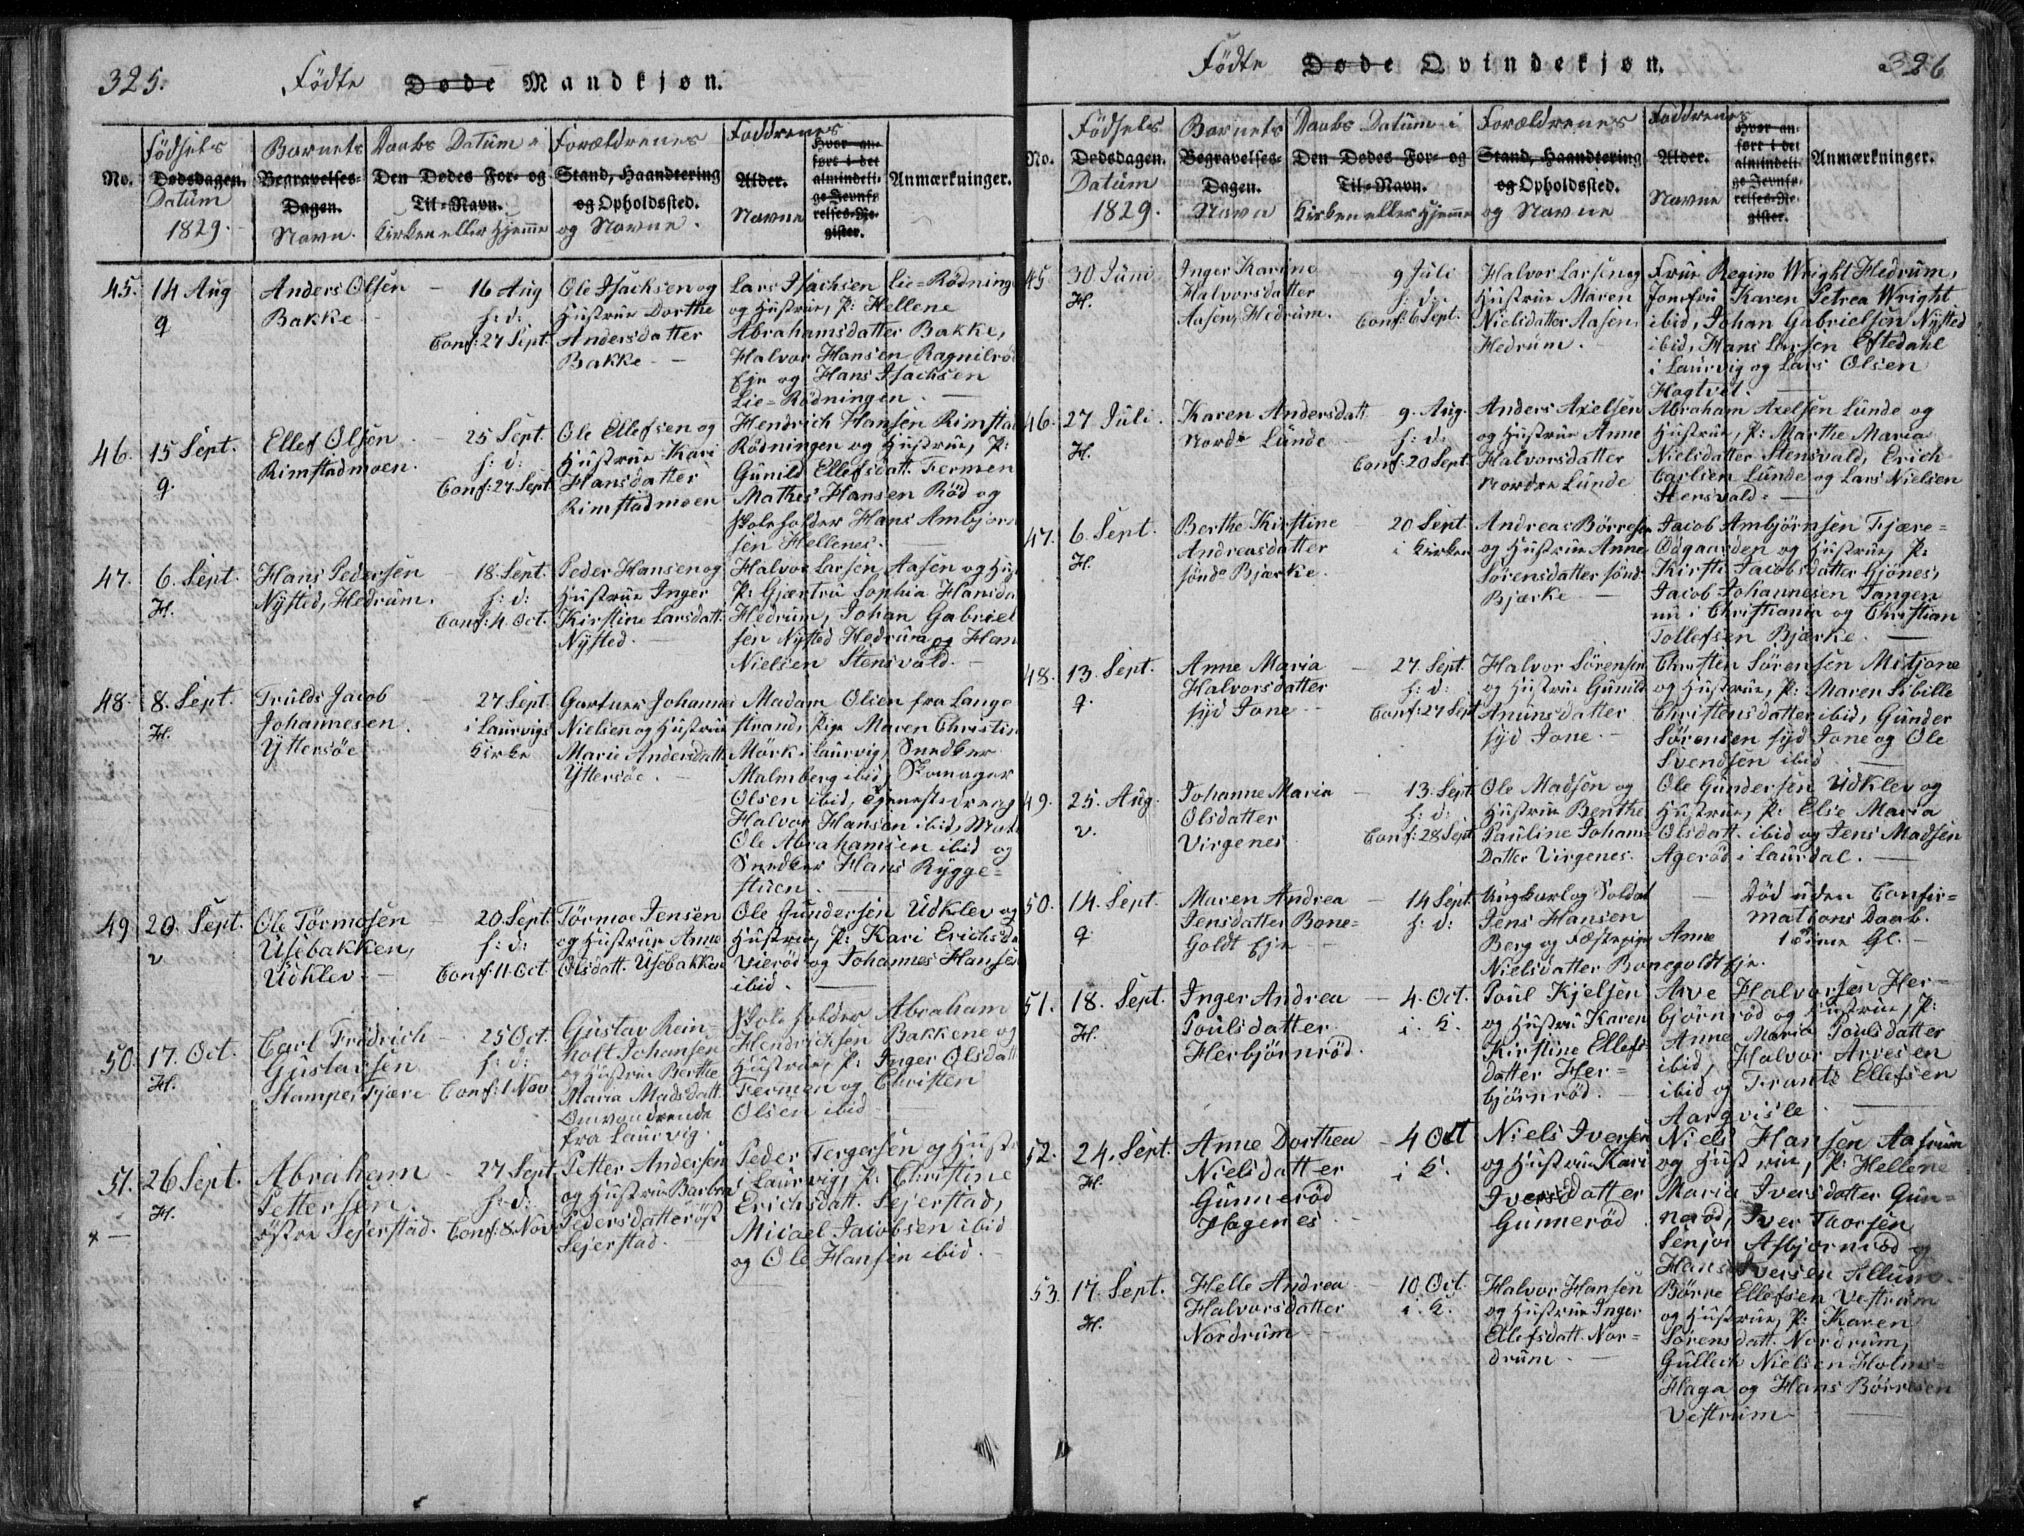 325.
Födte Døde Mandkjøn.
No.
Födsels
Dødsdagen.
Datum
1829.
Barnets
Begravelses-
Dagen.
Navn.
Daabs Datum i
Den Dødes For- og
Til-Navn.
Kirken eller Hjemme
Forældrenes
Stand, Haandtering
og Opholdssted.
og Navne.
Faddrenes
Alder.
Navne
Hvor an-
ført i det
almindeli-
ge Jevnfø-
relses-Re-
gister.
Anmærkninger.
45.
14 Aug
q
Anders Olsen
Bakke
16 Aug
h: d:
Conf: 27 Sept.
Ole Isachsen og
Hustrue Dorthe
Andersdatter
Bakke
Lars Isachsen Lie-Rödning
og Hustrue, P: Hellene
Abrahamsdatter Bakke,
Halvor Hansen Ragnilrö
Eje og Hans Isachsen
Lie-Rödningen.
46.
15 Sept.
q.
Ellef Olsen
Rimstadmoen.
25 Sept.
h: d:
Conf: 27 Sept
Ole Ellefsen og
Hustrue Kari
Hansdatter
Rimstadmoen
Hendrich Hansen Rimstad
Rödningen og Hustrue, P:
Gunild Ellefsdatt. Fermen
Mathis Hansen Röd og
Skoleholder Hans Ambjörn
sen Hellenes.
47.
6. Sept.
H.
Hans Pedersen
Nysted, Hedrum.
18. Sept.
h: d:
Conf: 4. Oct.
Peder Hansen og
Hustrue Inger
Kirstine Larsdatt.
Nysted.
Halvor Larsen Aasen og Hu
P: Gjærtru Sophia Hansda
Hedrum, Johan Gabriel
sen Nysted Hedrum og Han
Nielsen Stensvald.
48.
8. Sept.
H.
Trulds Jacob
Johannesen
Yttersöe
27 Sept.
i Laurvigs
Kirke
Gartner Johannes
Nielsen og Hustrue
Marie Andersdatt.
Yttersöe.
Madam Olsen fra Lange
strand, Pige Maren Christin
Mörk i Laurvig, Snedker
Malmberg ibid, Skomager
Olsen ibid, Tjenestedreng
Halvor Hansen ibid, Mat
Ole Abrahamsen ibid og
Snedker Hans Rygge-
stuen.
49
20. Sept.
v
Ole Tormosen
Usebakken,
Udklev
20. Sept.
h: d:
Conf: 11 Oct.
Tormoe Jensen
og Hustrue Anne
Olsdatt. Usebakken
Ole Gundersen Udklev og
Hustrue, P: Kari Erichsda
Vieröd og Johannes Hansen
ibid.
50.
17. Oct.
H.
Carl Fridrich
Gustavsen
Stamper Fjære
25 Oct.
h: d:
Conf: 1 Nov
Gustav Rein-
holt Johansen
og Hustrue Berthe
Maria Madsdatt.
Omvandrende
fra Laurvig.
Skoleholder Abraham
Hendrichsen Bakkene og
Hustrue, P: Inger Olsdatt
Fermen og Christen
Olsen ibid
51.
26 Sept.
H.
Abraham
Pettersen
östre Sejerstad.
27 Sept.
h: d:
Conf: 8. Nov
Petter Andersen
og Hustrue Barbra
Pedersdatter öst
Sejerstad.
Peder Tergersen og Hust
i Laurvig, P: Christine
Erichsdatt. Sejerstad,
Micael Jacobsen ibid
og Ole Hansen ibid.
326
Födte Døde Qvindekjøn.
No.
Födsels
Dødsdagen.
Datum
1829.
Barnets
Begravelses-
Dagen.
Navn
Daabs Datum i
Den Dødes For- og
Til-Navn.
Kirken eller Hjemme
Forældrenes
Stand, Haandtering
og Opholdssted.
og Navne
Faddrenes
Alder.
Navne
Hvor an-
ført i det
almindeli-
ge Jevnfø-
relses-Re-
gister.
Anmærkninger.
45
30 Juni
H.
Inger Karine
Halvorsdatter
Aasen, Hedrum.
9 Juli
h: d:
Conf: 6 Sept.
Halvor Larsen og
Hustrue Maren
Nielsdatter Aasen,
Hedrum.
Frue Regine Wright Hedrum,
Jomfru Karen Petrea Wright
ibid, Johan Gabrielsen Nysted
ibid, Hans Larsen Eftedahl
i Laurvig og Lars Olsen
Hagtvet.
46.
27 Juli.
H.
Karen Andersdatt
Nordr Lunde
9. Aug.
h: d:
Conf: 20 Sept.
Anders Axelsen
og Hustrue Anne
Halvorsdatter
Nordre Lunde
Abraham Axelsen Lunde og
Hustrue, P: Marthe Maria
Nielsdatter Stensvald, Erich
Carlsen Lunde og Lars Nielsen
Stensvald.
47.
6. Sept.
H.
Berthe Kirstine
Andreasdatter
söndr Bjærke.
20 Sept.
i Kirken
Andreas Börresen
og Hustrue Anne
Sörensdatter sönd
Bjærke
Jacob Ambjörnsen Fjære-
Odgaarden og Hustrue, P:
Kirsti Jacobsdatter Gjönes,
Jacob Johannesen Tangen
nu i Christiania og Christian
Tollefsen Bjærke.
48.
13. Sept.
q.
Anne Maria
Halvorsdatter
syd Jone
27. Sept
h: d:
Conf: 27 Sept
Halvor Sörensen
og Hustrue Gunild
Anunsdatter
syd Jone.
Christen Sörensen Mitjone
og Hustrue, P: Maren Sibille
Christensdatter ibid, Gunder
Sörensen syd Jone og Ole
Svendsen ibid
49.
25. Aug.
v.
Johanne Maria
Olsdatter
Virgenes
13. Sept.
h: d:
Conf: 28 Sept.
Ole Madsen og
Hustrue Berthe
Pauline Johans-
Datter Virgenes.
Ole Gundersen Udklev og
Hustrue, P: Else Maria
Olsdatt. ibid og Jens Madsen
Ageröd i Laurdal.
50.
14. Sept.
q
Maren Andrea
Jensdatter Bone-
Goldt Eje
14 Sept.
h: d:
Ungkarl og Soldat
Jens Hansen
Berg og Fæstepige Anne
Nielsdatter Bonegoldt Eje.
Död uden Confir-
mations Daab.
1 Time Gl.
51.
18. Sept.
H.
Inger Andrea
Poulsdatter
Herbjörnröd.
4. Oct.
i. K.
Poul Kjelsen
og Hustru Karen
Kirstine Ellefs-
datter Her-
björnröd.
Arve Halvorsen Her-
björnröd og Hustrue, P:
Anne Maria Poulsdatter
ibid, Halvor Arvesen
ibid og Frants Ellefsen
Aarqvisle.
52.
24. Sept.
H.
Anne Dorthea
Nielsdatter
Gunneröd
Hagenes.
4 Oct
i K.
Niels Iversen
og Hustrue Kari
Iversdatter
Gunneröd
Niels Hansen Aasrum
og Hustrue, P: Hellene
Maria Iversdatter Gun-
neröd, Iver Thorsen
Senjor Asbjörnröd og
Hans Iversen Allum.
53.
17. Sept.
H.
Helle Andrea
Halvorsdatter
Nordrum
10 Oct.
i. K.
Halvor Hansen
og Hustrue Inger
Ellefsdatt. Nor-
drum.
Börre Ellefsen Vestrum
og Hustrue, P: Karen
Sörensdatt. Nordrum,
Gullich Nielsen Holms-
Haga og Hans Börresen
Vestrum